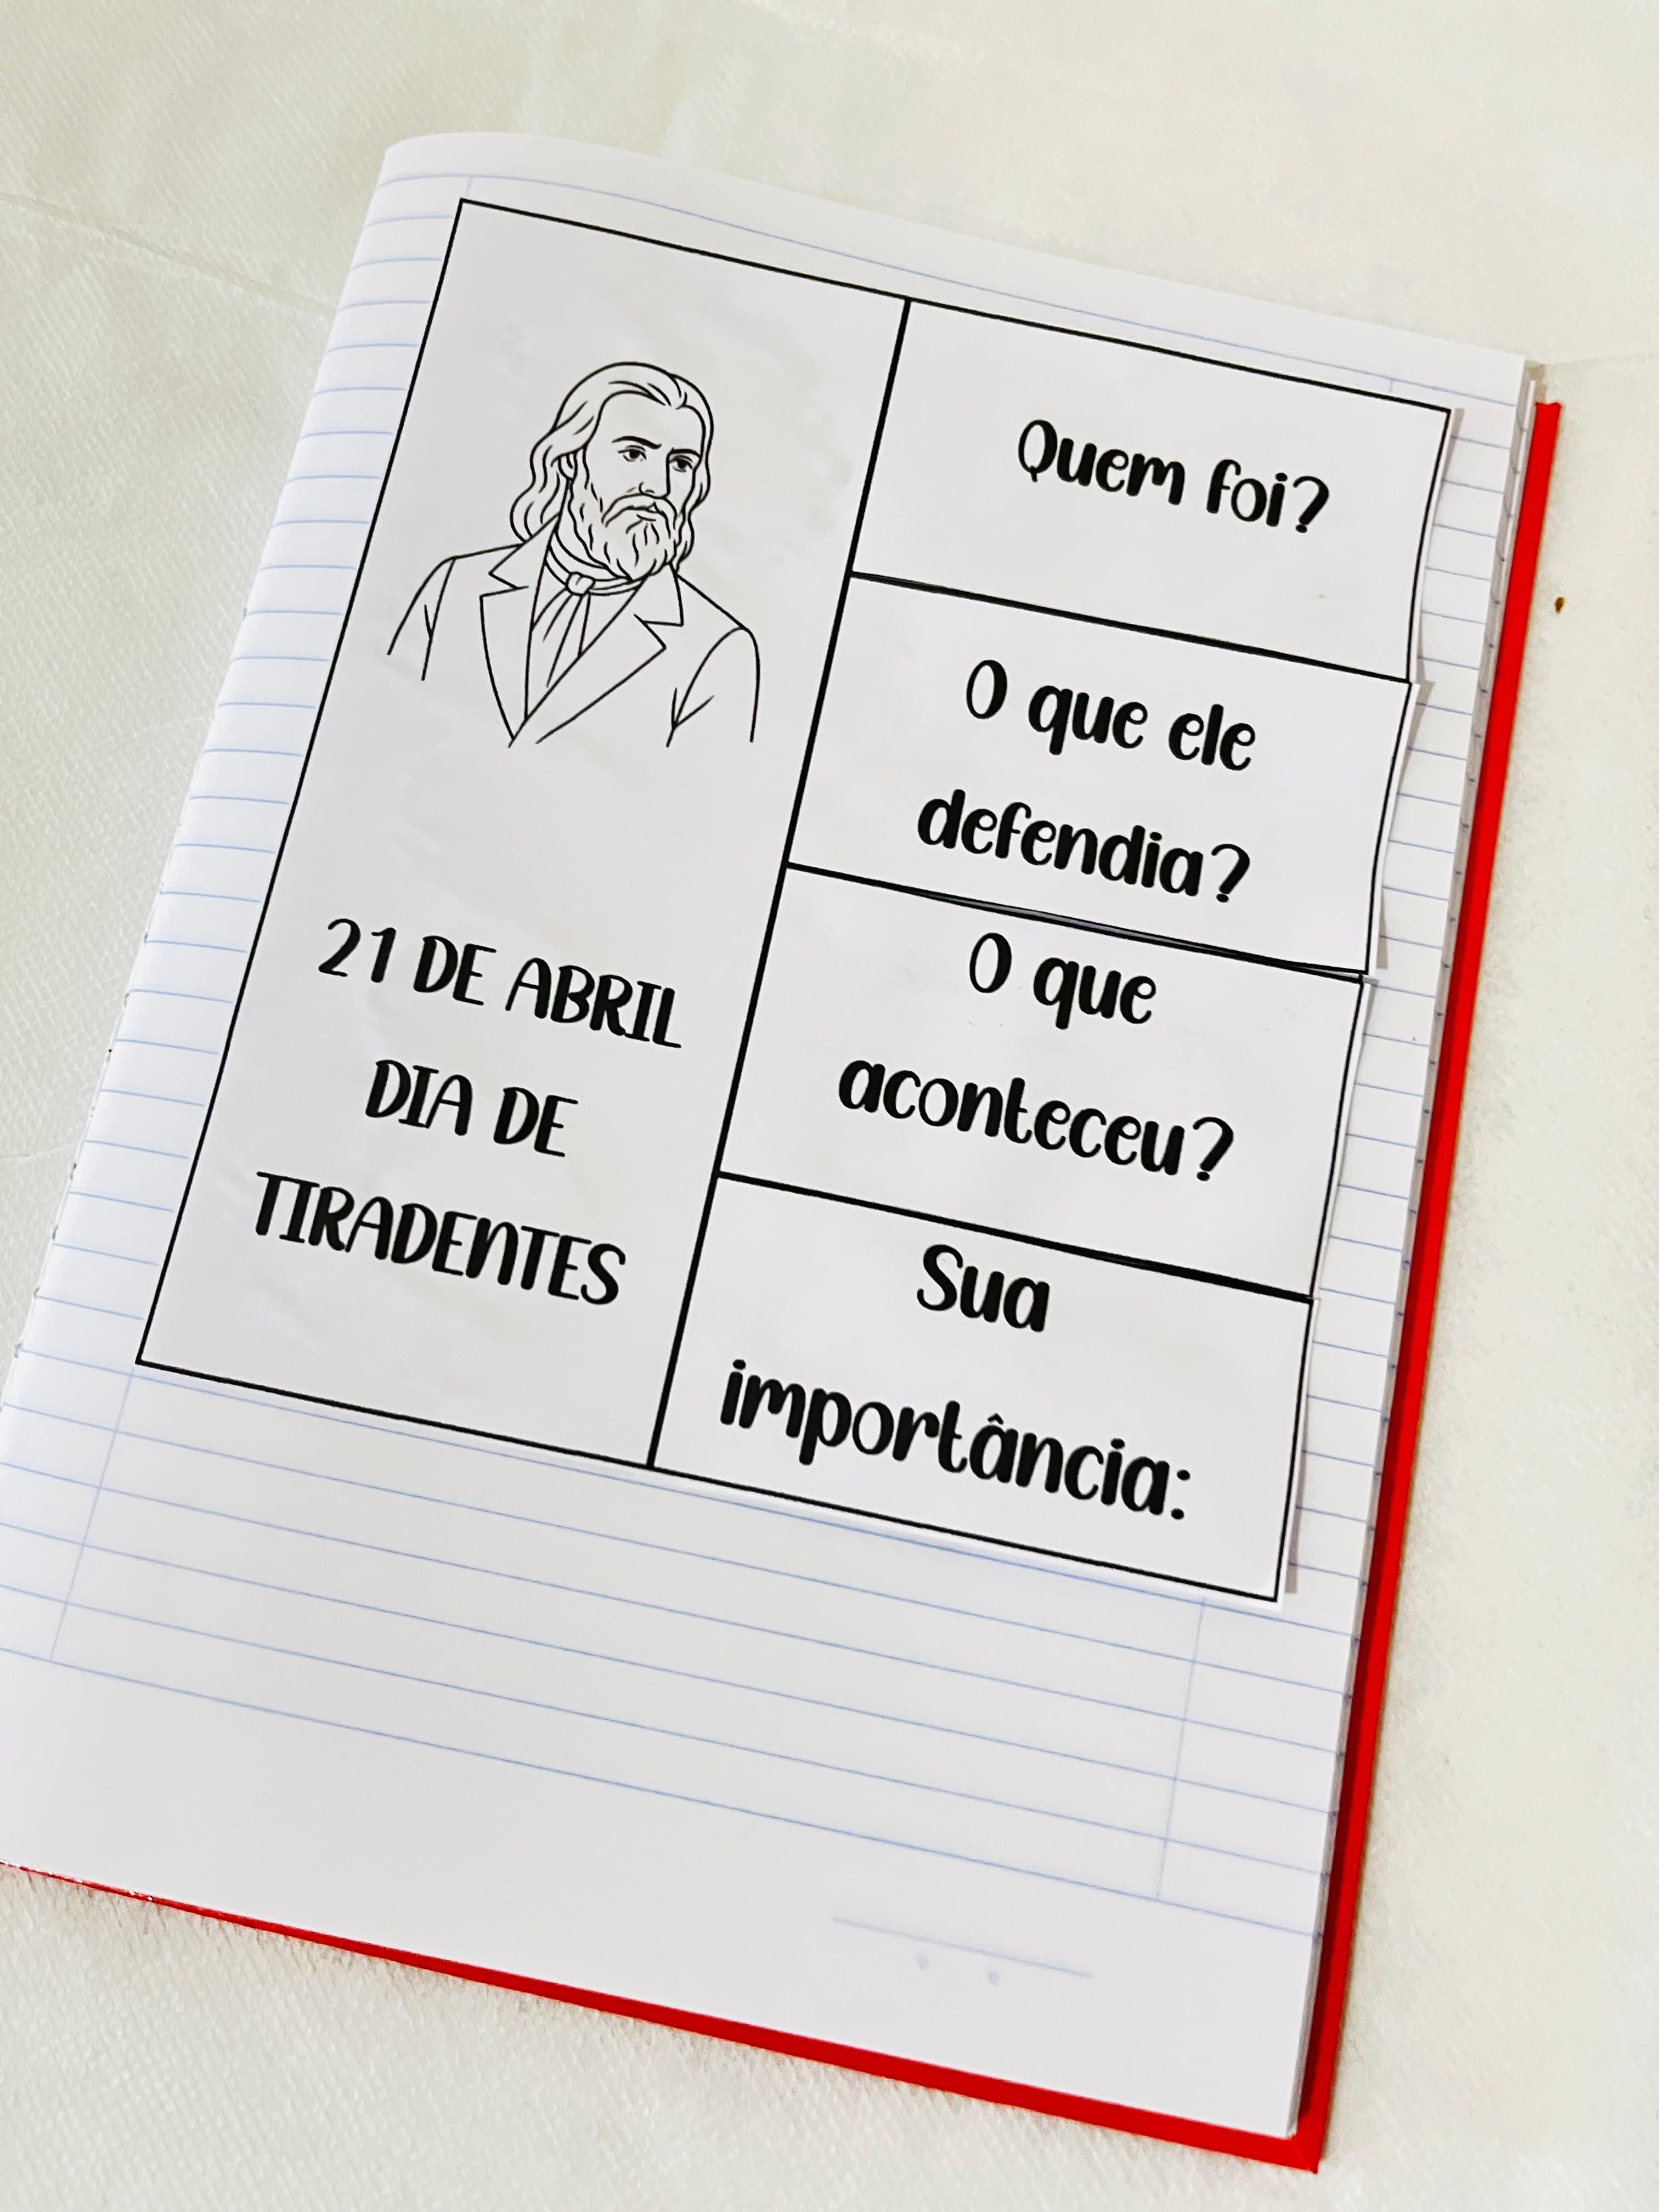 21 DE ABRIL
DIA DE
TIRADENTES
Quem foi?
O que ele
defendia?
O que
aconteceu?
Sua
importância: